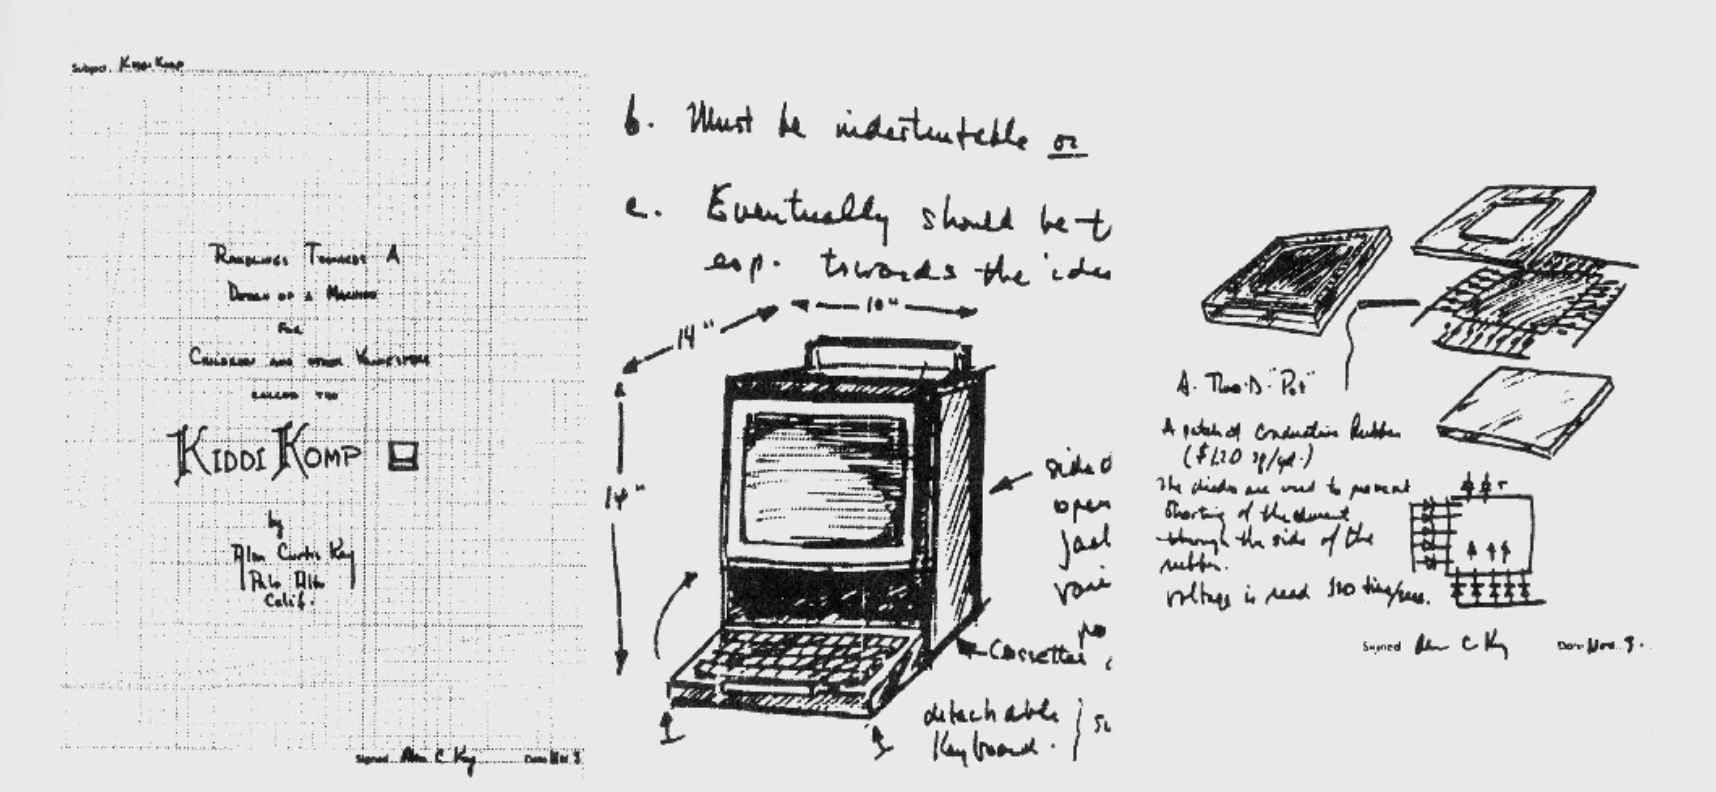 Subject KiddiKomp
Ramblings Towards A
Design of a Machine
For
Children and other
called the
KIDDI KOMP
by
Alan Curtis Kay
Palo Alto
Calif.
Signed Alan C Kay Date Nov. 3
b. Must be indestructable or
c. Eventually should be t
esp. towards the idea
14" 10"
14"
side o
open
jack
vari
po
Cassettes
detachable
Keyboard.
A. Two-D "Pot"
A patch of conductive Rubber
The diodes are used to prevent
Shorting of the current
through the side of the
rubber.
voltage is read 120 times/sec.
Signed Alan C Kay Date Nov. 3.